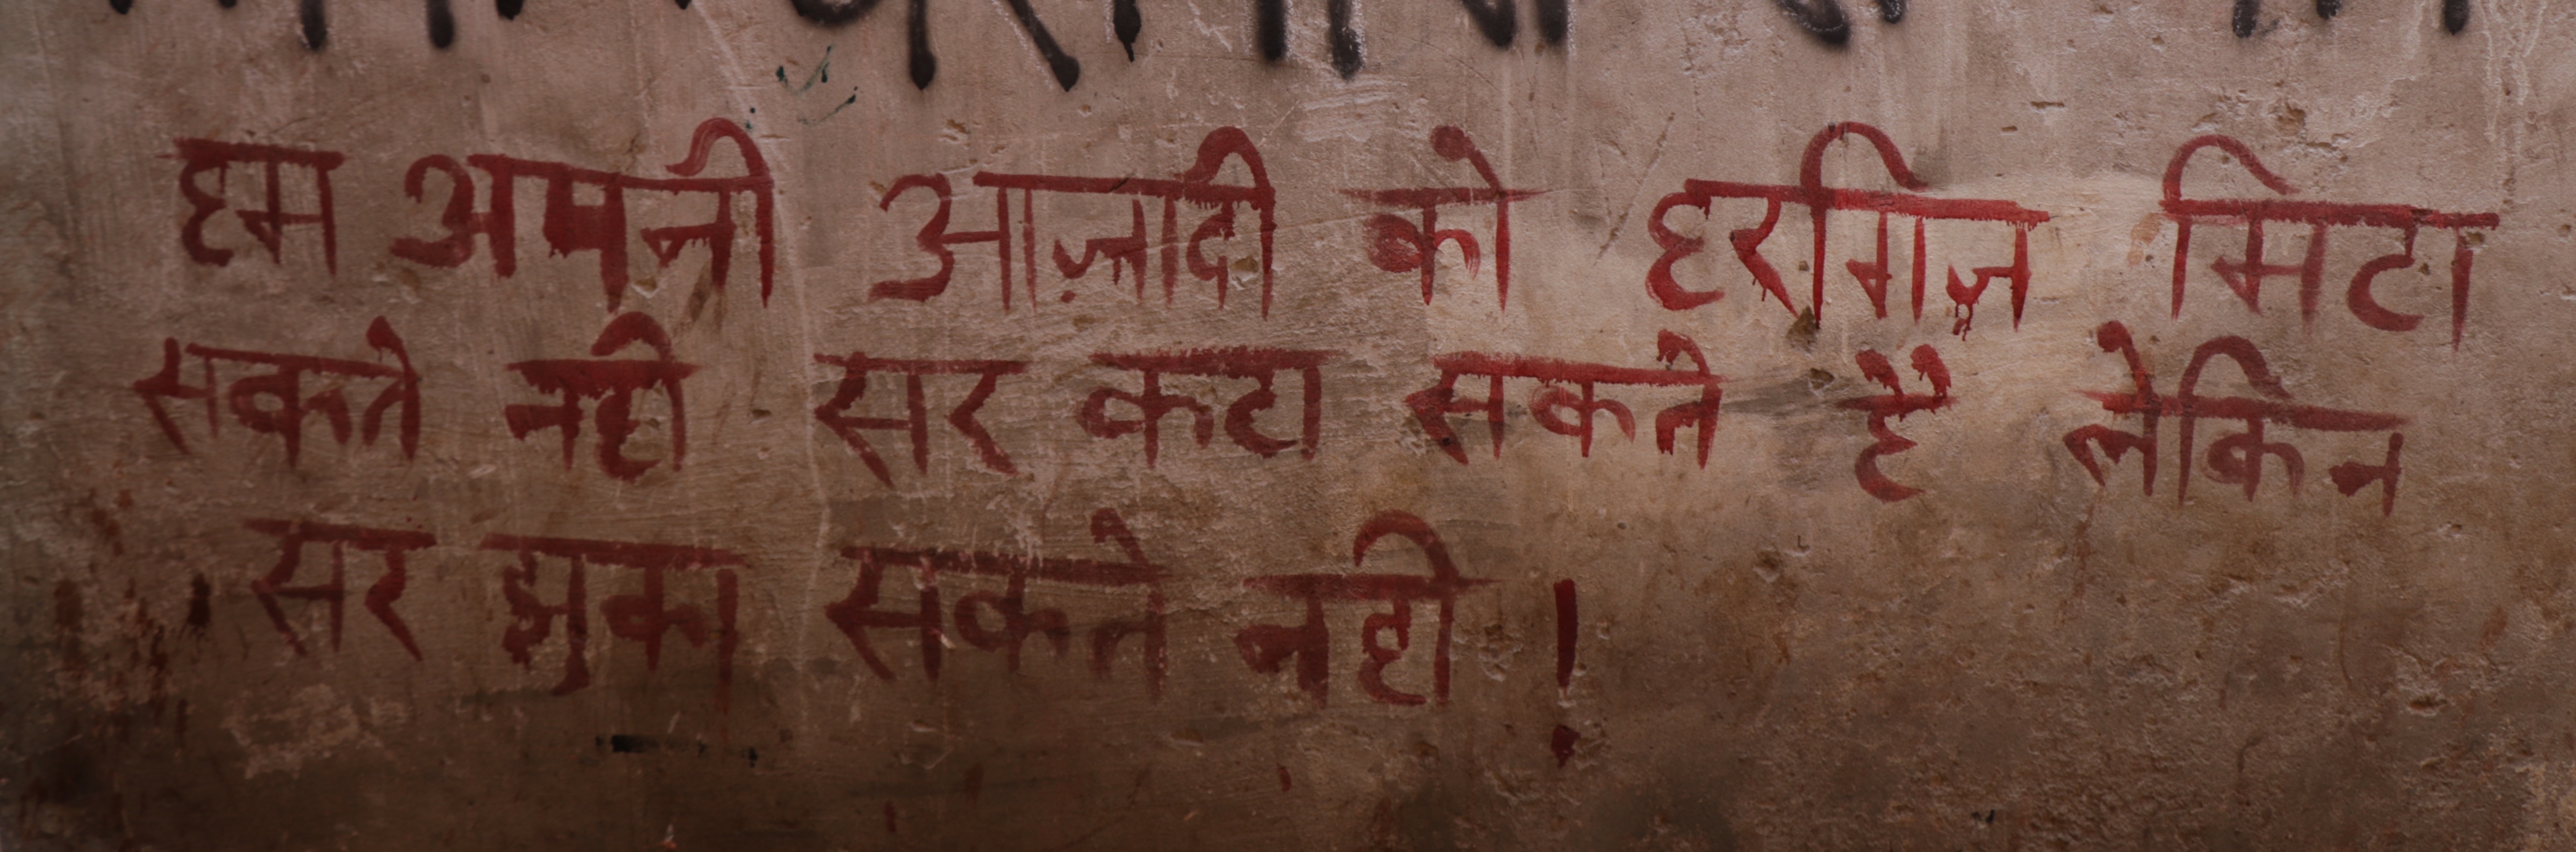 हम अपनी आज़ादी को हरगिज़ मिटा
सकते नही सर कटा सकते है लेकिन
सर झुका सकते नही !